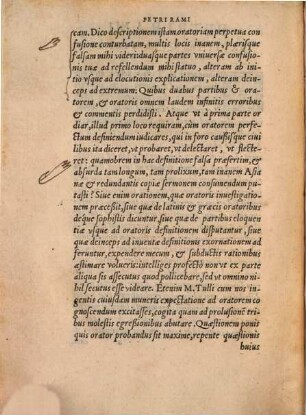 PETRI RAMI
cam. Dico descriptionem istam oratoriam perpetua con
fusione conturbatam, multis locis inanem, plærisque
falsam mihi videri: duasque partes vniuersæ confusio
nis tuæ ad refellendum mihi statuo, alteram ab ini
tio vsque ad elocutionis explicationem, alteram dein
ceps ad extremum: Quibus duabus partibus & ora
torem, & oratoris omnem laudem infinitis erroribus
& commentis perdidisti. Atque vt à prima parte or
diar, illud primo loco requiram, cùm oratorem perfe
ctum definiendum iudicares, qui in foro causisque ciui
libus ita diceret, vt probaret, vt delectaret, vt flecte
ret: quamobrem in hac definitione falsa præsertim, &
absurda tam longum, tam prolixum, tam inanem Asia
næ & redundantis copiæ sermonem consumendum pu
tasti? Siue enim oratorem, quæ oratoris inuestigatio
nem præcessit, siue quæ de latinis & græcis oratoribus
deque sophistis dicuntur, siue quæ de partibus eloquen
tiæ vsque ad oratoris definitionem disputantur, siue
quæ deinceps ad inuentæ definitionis exornationem ad
feruntur, expendere mecum, & subductis rationibus
æstimare volueris: intelliges profectò non vt ex parte
aliqua sis assecutus quod pollicebare, sed vt omnino ni
hil secutus esse videare. Etenim M. Tulli cum nos in
gentis cuiusdam muneris expectatione ad oratorem co
gnoscendum excitasses, cogita quam ad prolusiones tri
bus molestis egressionibus abutare. Quæstionem ponis
quis orator probandus sit maxime, repente quæstionis
huius